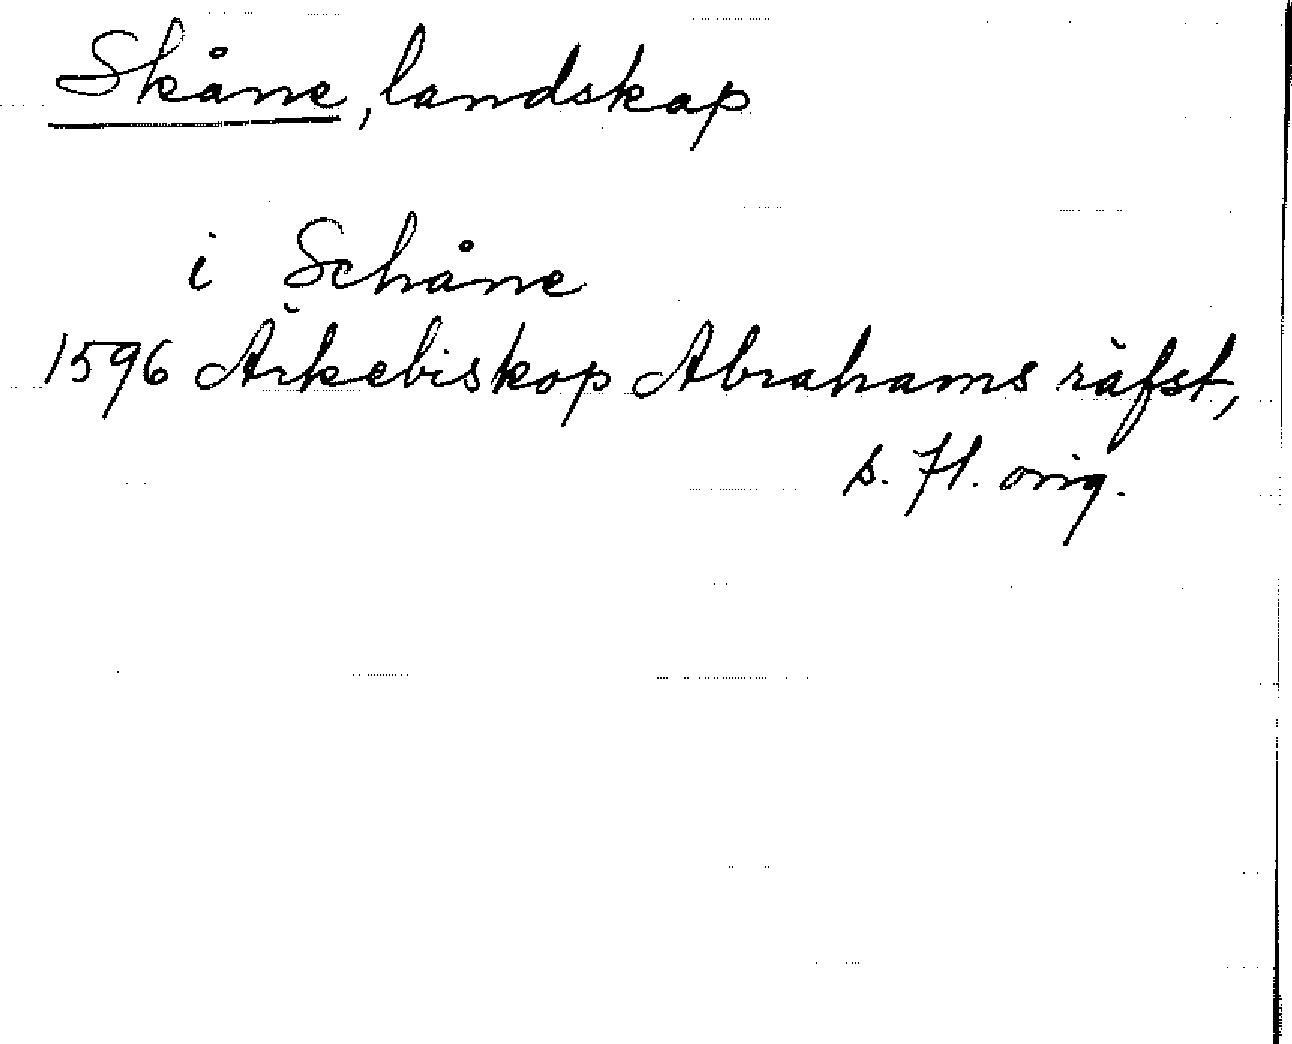 Skåne, landskap
i Schåne
1596 Ärkebiskop Abrahams räfst,
s. 71. orig.